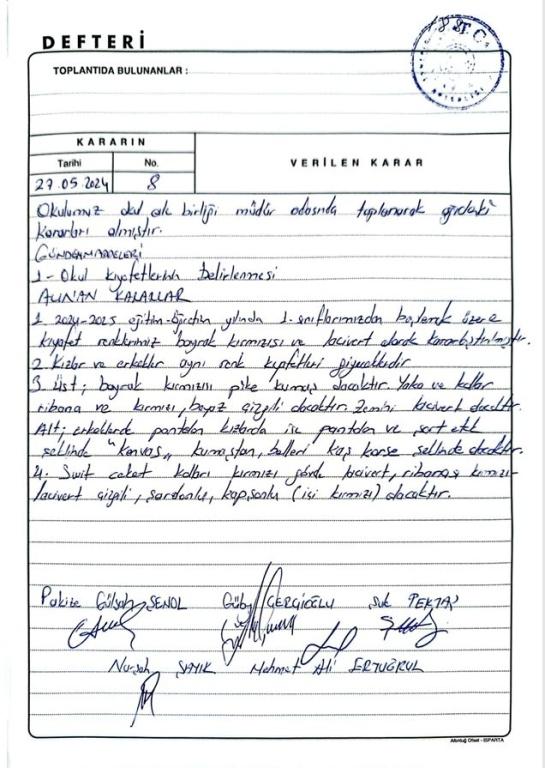 DEFTERİ
88
T.C.
TOPLANTIDA BULUNANLAR :
KARARIN
Tarihi No.
VERİLEN KARAR
27.05.2024 8
Okulumuz okul aile birliği müdür odasında toplanarak aşağıdaki
kararları almıştır.
GÜNDEM MADDELERİ
1- Okul kıyafetlerinin Belirlenmesi
ALINAN KARARLAR
1. 2024-2025 eğitim-öğretim yılında 1. sınıflarımızdan başlamak üzere
kıyafet renklerimiz bayrak kırmızısı ve lacivert olarak kararlaştırılmıştır.
2. Kızlar ve erkekler aynı renk kıyafetleri giyecektir.
3. Üst; bayrak kırmızısı pike kumaş olacaktır. Yaka ve kollar
ribana ve kırmızı, beyaz çizgili olacaktır. Zemini lacivert olacaktır.
Alt; erkeklerde pantolon kızlarda ise pantolon ve şort etek
şeklinde "kanvas" kumaştan, belleri kaş korse şeklinde olacaktır.
4. Swit ceket kolları kırmızı gövde lacivert, ribanası kırmızı-
lacivert çizgili, şardonlu, kapşonlu (içi kırmızı) olacaktır.
Pakize Gülşah ŞENOL GERGİOĞLU TEKTAŞ
Nurşah ŞAYIK Mehmet Ali ERTUĞRUL
Altıntuğ Ofset - ISPARTA